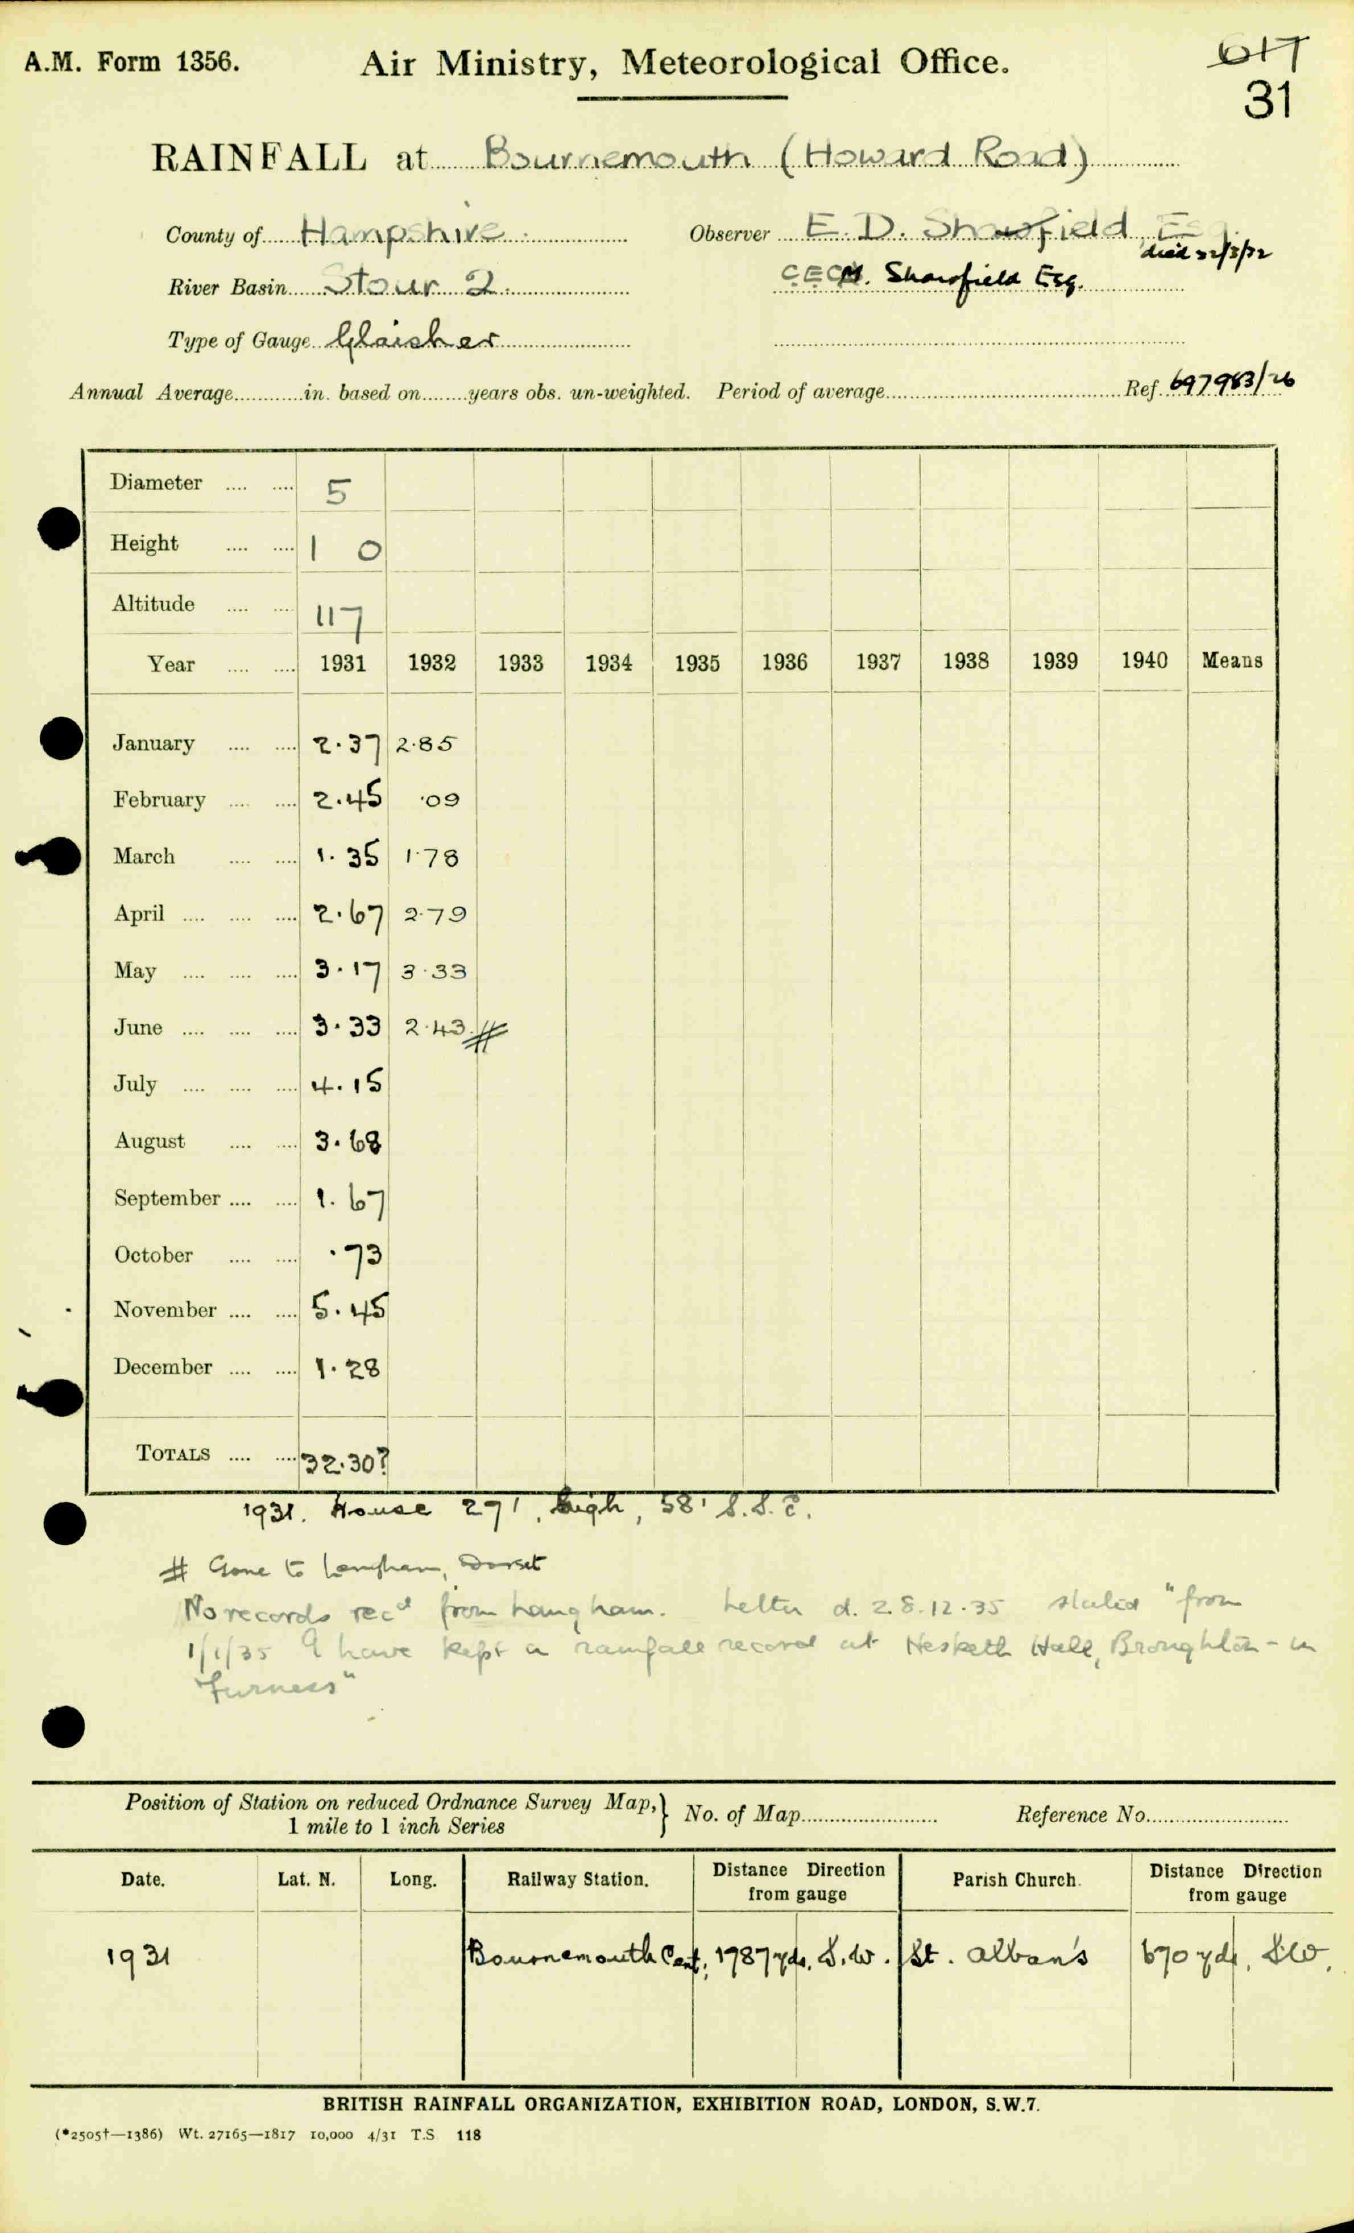 A.M. Form 1356. Air Ministry, Meteorological Office. 617
31
RAINFALL at Bournemouth (Howard Road)
County of Hampshire. Observer E. D. Shawfield, Esq.
died 22/3/32
River Basin Stour 2. M. Shawfield Esq.
Type of Gauge Glaisher
Annual Average in. based on years obs. un-weighted. Period of average Ref. 697983/26
Diameter 5
Height 1 0
Altitude 117
Year 1931 1932 1933 1934 1935 1936 1937 1938 1939 1940 Means
January 2.37 2.85
February 2.45 .09
March 1.35 1.78
April 2.67 2.79
May 3.17 3.33
June 3.33 2.43 #
July 4.15
August 3.68
September 1.67
October .73
November 5.45
December 1.28
TOTALS 32.30?
1931. House 27', high, 58' S.S.E.
# Gone to Longham, Dorset
No records recd from Langham. Letter d. 28.12.35 stated "from
1/1/35 I have kept a rainfall record at Hesketh Hall, Broughton-in
Furness"
Position of Station on reduced Ordnance Survey Map, } No. of Map Reference No.
1 mile to 1 inch Series
Date. Lat. N. Long. Railway Station. Distance Direction from gauge Parish Church. Distance Direction from gauge
1931 Bournemouth Cent. 1787 yds. S.W. St. Alban's 670 yds. SW.
BRITISH RAINFALL ORGANIZATION, EXHIBITION ROAD, LONDON, S.W.7.
(*2505†—1386) Wt. 27165—1817 10,000 4/31 T.S. 118